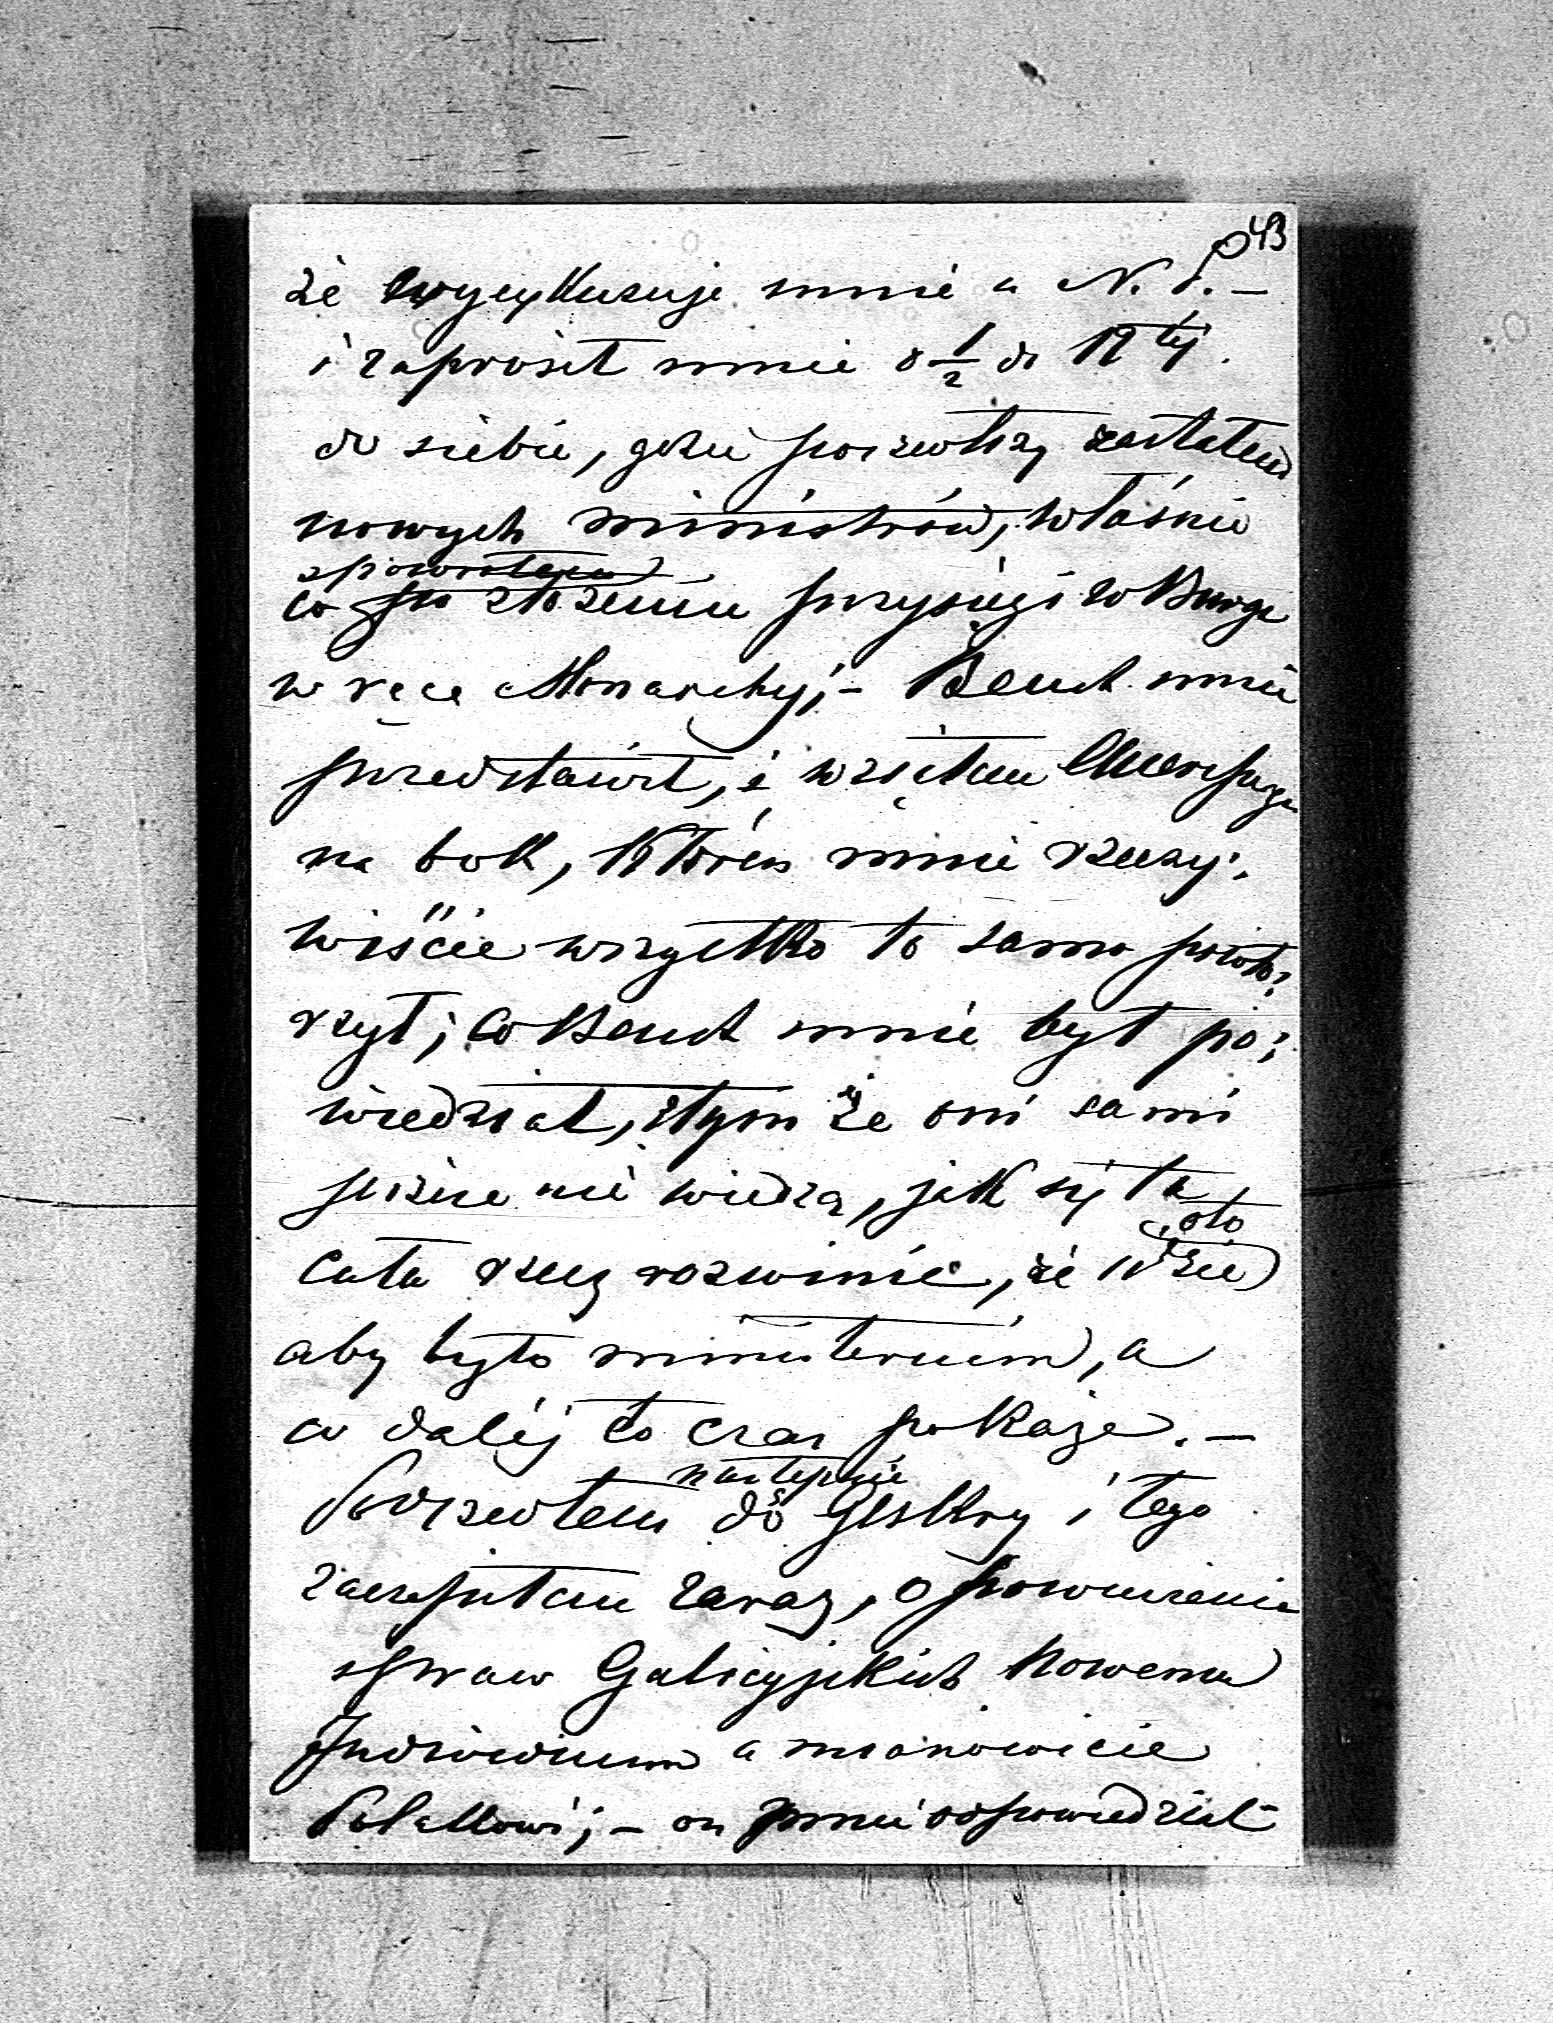 43
że wyexkuzuje mnie u N. P. –
i zaprosił mnie o ½ do 12tej.
do siebie, gdzie poszedłszy zastałem
nowych ministrów, właśnie
z powrotem
co po złożeniu przysięgi w Burgu
w ręce Monarchy; – Beust mnie
przedstawił, i wziąłem Auersperga
na bok, który mnie rzeczy-
wiście wszystko to samo powtó-
rzył; co Beust mnie był po-
wiedział, z tym że oni sami
jeszcze nie wiedzą, jak się ta
cała rzecz rozwinie, że idzie
oto
aby było ministerium, a
co daléj to czas pokaże. –
następnie
Poszedłem do Giskry i tego
zaczepiłem zaraz, o powierzenie
spraw Galicyjskich nowemu
Indiwiduum a mianowicie
Polakowi; – on mnie odpowiedział